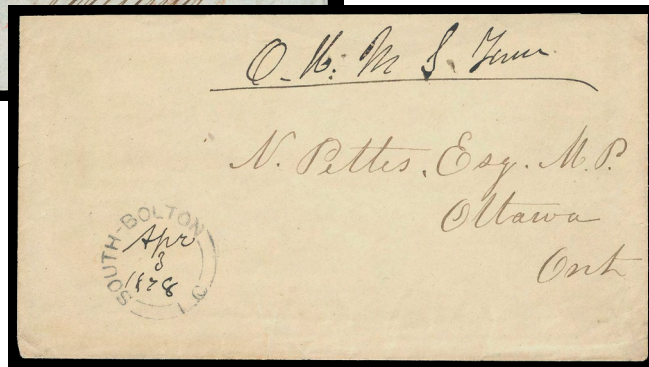 O. H. M. S. Free
N. Pettes. Esq. M.P.
Ottawa
Ont
SOUTH-BOLTON
Apr
3
1878